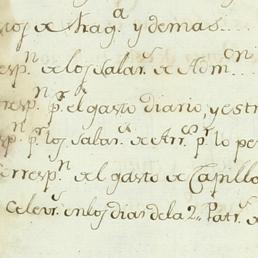 de Arag.a y demas...
resp.n de los salar.s de Adm.on...
resp.n p.r el gasto diario, y estr
p.n p.r los salar.s de Arr.os p.r lo pe
orresp.n del gasto de Capilla
Celev.s en los dias de la 2.a Patr.s